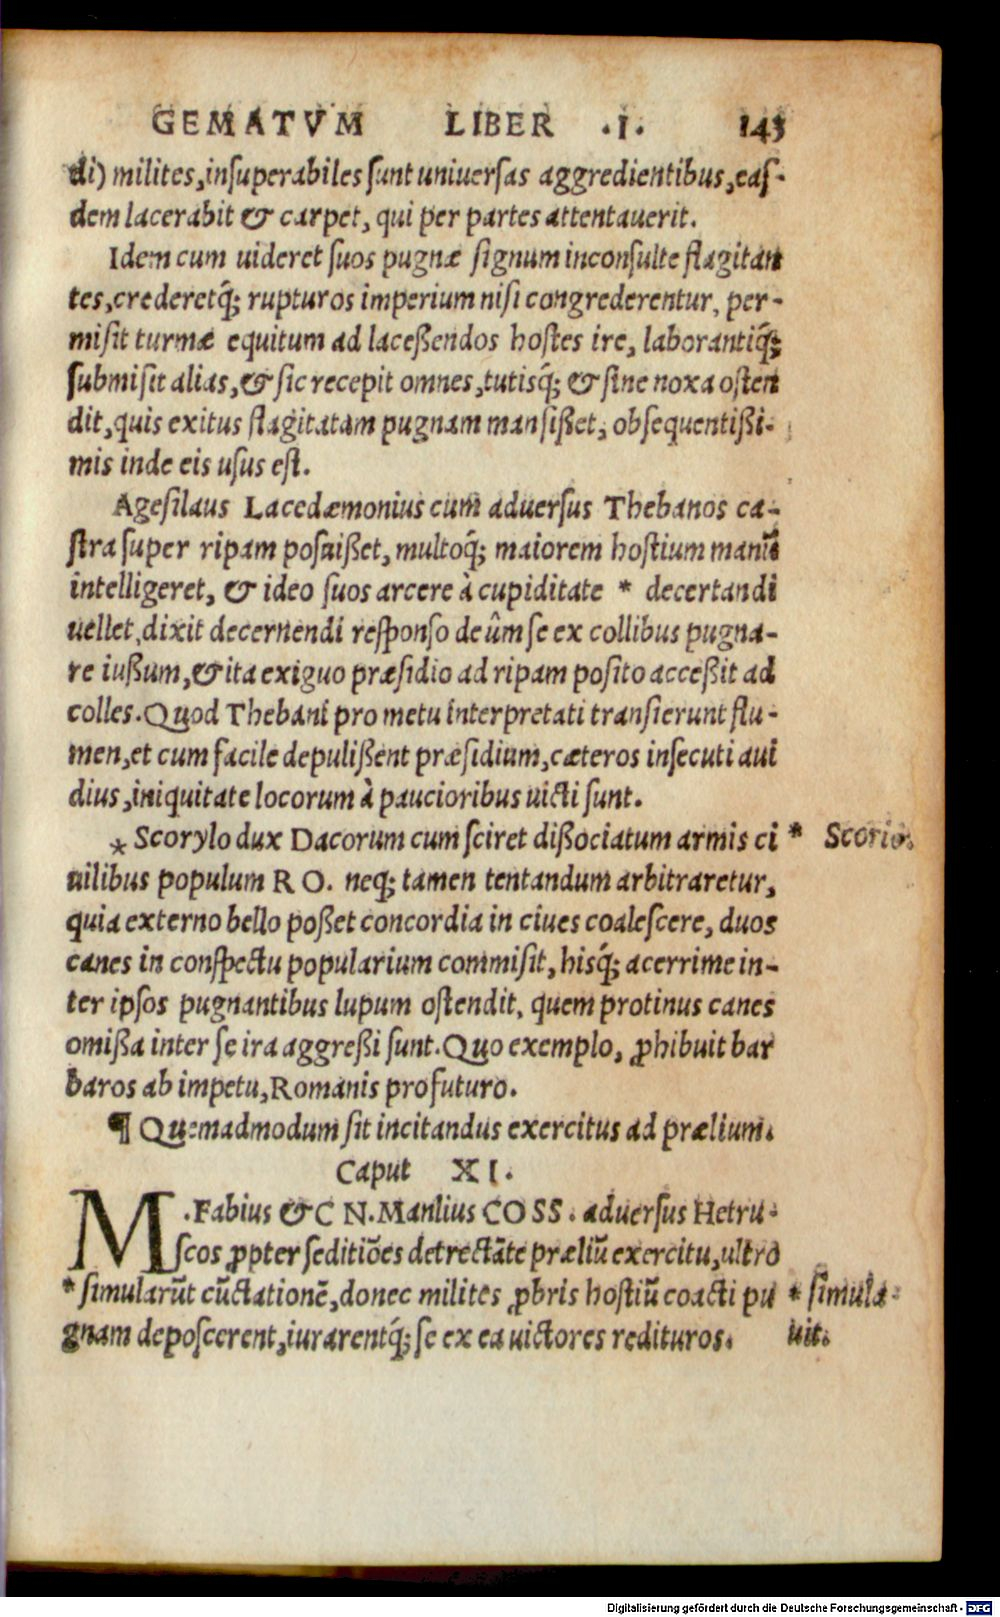 GEMATVM LIBER .I. 143
di) milites,insuperabiles sunt uniuersas aggredientibus,eas-
dem lacerabit & carpet, qui per partes attentauerit.
Idem cum uideret suos pugnæ signum inconsulte flagitan
tes,crederetq́; rupturos imperium nisi congrederentur, per-
misit turmæ equitum ad laceßendos hostes ire, laborantiq́;
submisit alias,& sic recepit omnes,tutisq́; & sine noxa osten
dit,quis exitus flagitatam pugnam mansißet, obsequentißi-
mis inde eis usus est.
Agesilaus Lacedæmonius cum aduersus Thebanos ca-
stra super ripam posuißet, multoq́; maiorem hostium manũ
intelligeret, & ideo suos arcere à cupiditate * decertandi
uellet,dixit decernendi responso deûm se ex collibus pugna-
re iußum,& ita exiguo præsidio ad ripam posito acceßit ad
colles.Quod Thebani pro metu interpretati transierunt flu-
men,et cum facile depulißent præsidium,cæteros insecuti aui
dius,iniquitate locorum à paucioribus uicti sunt.
* Scorylo dux Dacorum cum sciret dißociatum armis ci * Scorio.
uilibus populum RO. neq; tamen tentandum arbitraretur,
quia externo bello poßet concordia in ciues coalescere, duos
canes in conspectu popularium commisit, hisq́; acerrime in-
ter ipsos pugnantibus lupum ostendit, quem protinus canes
omißa inter se ira aggreßi sunt.Quo exemplo, ꝓhibuit bar
baros ab impetu,Romanis profuturo.
¶ Quemadmodum sit incitandus exercitus ad prælium.
Caput XI.
M.Fabius & CN.Manlius COSS. aduersus Hetru-
scos ꝓpter seditiões detrectãte præliũ exercitu,ultro
* simularũt cũctationẽ,donec milites ꝓbris hostiũ coacti pu * simula-
gnam deposcerent,iurarentq́; se ex ea uictores redituros. uit.
Digitalisierung gefördert durch die Deutsche Forschungsgemeinschaft - DFG